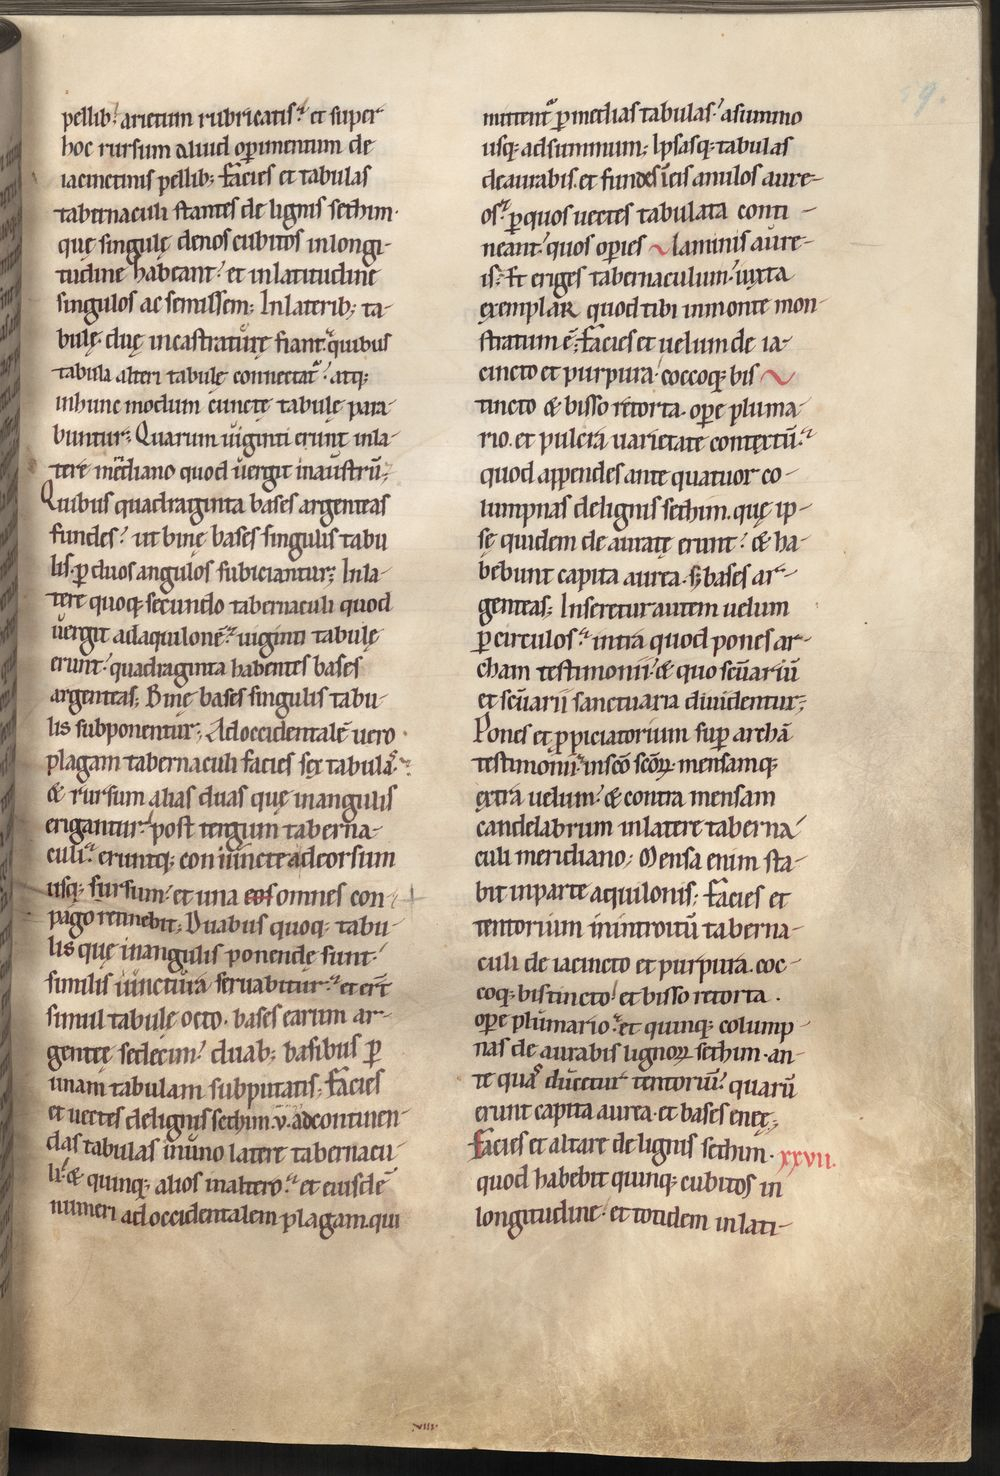 pellib; arietum rubricatis. et super
hoc rursum aliud operimentum de
iacinctinis pellib; Facies et tabulas
tabernaculi stantes de lignis sethim.
quę singulę denos cubitos inlongi-
tudine habeant. et inlatitudine
singulos ac semissem; Inlaterib; ta-
bulę. duę incastraturę fiant. quibus
tabula alteri tabulę connectat᷑. atq;
inhunc modum cunctę tabulę para-
buntur; Quarum uiginti erunt inla-
tere meridiano quod uergit inaustrū;
Quibus quadraginta bases argenteas
fundes. ut binę bases singulis tabu
lis. ꝑ duos angulos subiciantur; Inla-
tere quoq; secundo tabernaculi quod
uergit adaquilonē. uiginti tabulę
erunt. quadraginta habentes bases
argenteas; Binę bases singulis tabu-
lis subponentur; Adoccidentalē uero
plagam tabernaculi facies sex tabulas.
& rursum alias duas quę inangulis
erigantur. post tergum taberna-
culi. eruntq; coniunctę adeorsum
usq; sursum. et una eos omnes con-
pago retinebit; Duabus quoq; tabu-
lis quę inangulis ponendę sunt.
similis iunctura seruabitur. et ert̄
simul tabulę octo. bases earum ar-
gentę sedecim. duab; basibus ꝑ
unam tabulam subputatis; Facies
et uectes delignis sethim .v. adcontinen-
das tabulas inuno latere tabernacu-
li. & quinq; alios inaltero. et eiusdē
numeri adoccidentalem plagam. qui
mittent᷑ ꝑ medias tabulas. asummo
usq; adsummum; Ipsasq; tabulas
deaurabis. et fundes ineis anulos aure-
os. ꝑ quos uectes tabulata conti-
neant. quos operies laminis aure-
is; Et eriges tabernaculum. iuxta
exemplar quod tibi inmonte mon-
stratum ē; Facies et uelum de ia-
cincto et purpura. coccoq; bis
tincto & bisso retorta. opere pluma-
rio. et pulcra uarietate contextū.
quod appendes ante quatuor co-
lumpnas delignis sethim. quę ip-
sę quidem de auratę erunt. & ha-
bebunt capita aurea. s; bases ar-
genteas; Inseretur autem uelum
ꝑ circulos. intra quod pones ar-
cham testimonii. & quo scūariū
et scūarii sanctuaria diuidentur;
Pones et ꝓpiciatorium super archā
testimonii. inscō scōꝝ. mensamq;
extra uelum. & contra mensam
candelabrum inlatere taberna
culi meridiano; Mensa enim sta-
bit inparte aquilonis; Facies et
tentorium inintroitū taberna-
culi de iacincto et purpura. coc-
coq; bistincto. et bisso retorta.
opere plumario. et quinq; colump-
nas de aurabis lignoꝝ sethim. an-
te quas ducetur tentoriū. quarū
erunt capita aurea. et bases enee;
Facies et altare de lignis sethim. xxvii.
quod habebit quinq; cubitos in
longitudine. et totidem inlati-
viii.